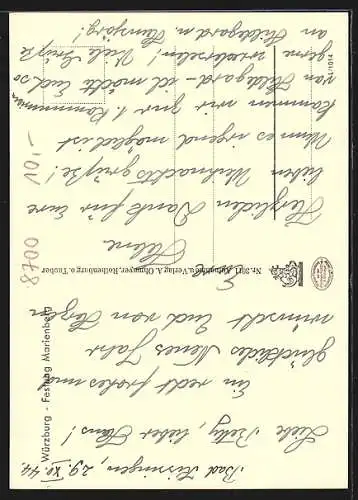 Bad Kissingen, 29. XII. 44.
Liebe Betty, lieber Hans!
Ein recht frohes und
glückliches Neues Jahr
wünscht Euch von Herzen
Eure
Helene
Herzlichen Dank für Eure
lieben Weihnachtsgrüße!
Wenn es irgend möglich ist
kommen wir zur 1. Kommunion
von Hildegard – ich möchte Euch so
gerne wiedersehen! Viele Grüße
an Hildegard u. Hansjörg!
Würzburg - Festung Marienberg
Aufnahme u. Verlag A. Ohmayer, Rothenburg o. Tauber
8700 10,-